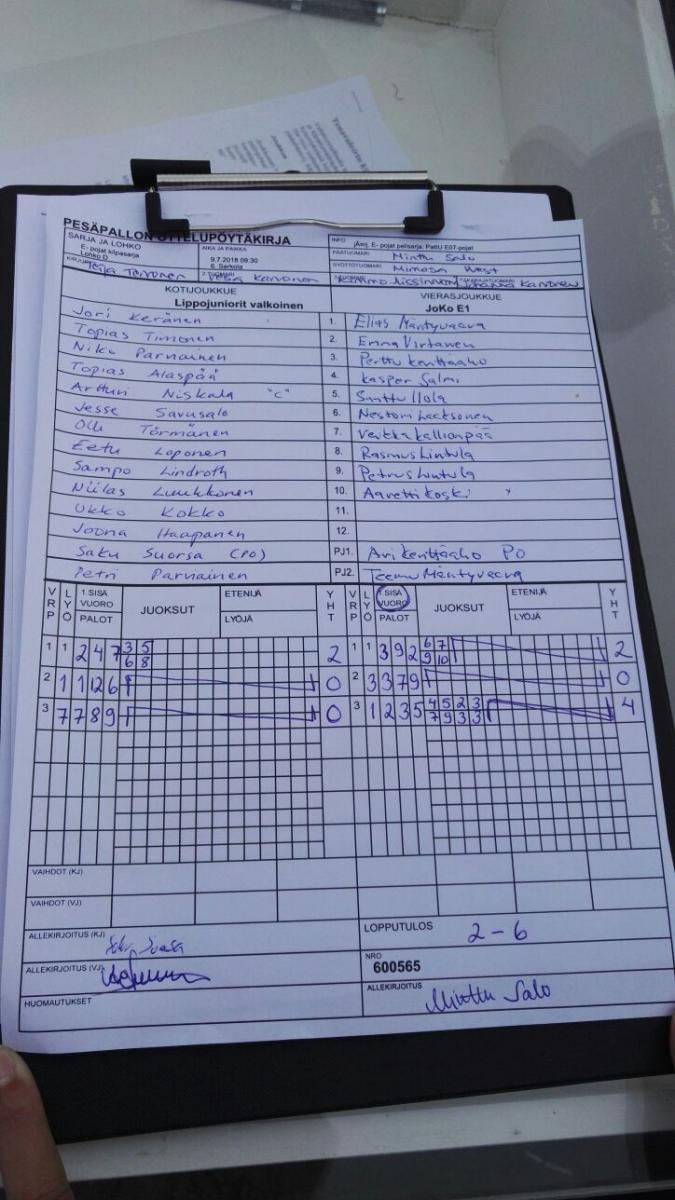 PESÄPALLON OTTELUPÖYTÄKIRJA
SARJA JA LOHKO
E- pojat kilpasarja
Lohko D
AIKA JA PAIKKA
9.7.2018 09:30
6. Sarkola
INFO
jÄrj. E- pojat pelisarja: PattU E07-pojat
PÄÄTUOMARI Minttu Salo
SYÖTTÖTUOMARI Mimosa West
KIRJURI Teija Tervonen
2-TUOMARI Vesa Karvonen
Johanna Karvonen
KOTIJOUKKUE
Lippojuniorit valkoinen
VIERASJOUKKUE
JoKo E1
Jori Keränen 1. Elias Mäntyvaara
Topias Timonen 2. Emma Virtanen
Niko Parvainen 3. Perttu Kenttäaho
Topias Alaspää 4. Kasper Salmi
Artturi Niskala "C" 5. Santtu Ilola
Jesse Savusalo 6. Nestori Laaksonen
Olli Törmänen 7. Veikka Kallionpää
Eetu Loponen 8. Rasmus Lintula
Sampo Lindroth 9. Petrus Lintula
Niilas Luukkonen 10. Aaretti Koski
Ukko Kokko 11.
Joona Haapanen 12.
Saku Suorsa (PO) PJ1. Ari Kenttäaho PO
Petri Parvainen PJ2. Teemu Mäntyvaara
VRP LYÖ 1.SISÄ VUORO PALOT JUOKSUT ETENIJÄ LYÖJÄ YHT VRP LYÖ 1.SISÄ VUORO PALOT JUOKSUT ETENIJÄ LYÖJÄ YHT
1 1 2 4 7 3 5 2 1 1 3 9 2 6 7 2
6 8 9 10
2 1 1 12 6 0 2 3 3 7 9 0
3 7 7 8 9 0 3 1 2 3 5 4 5 2 3 4
7 9 3 3
VAIHDOT (KJ)
VAIHDOT (VJ)
ALLEKIRJOITUS (KJ) Saku Suorsa
LOPPUTULOS 2-6
ALLEKIRJOITUS (VJ)
NRO
600565
HUOMAUTUKSET
ALLEKIRJOITUS Minttu Salo